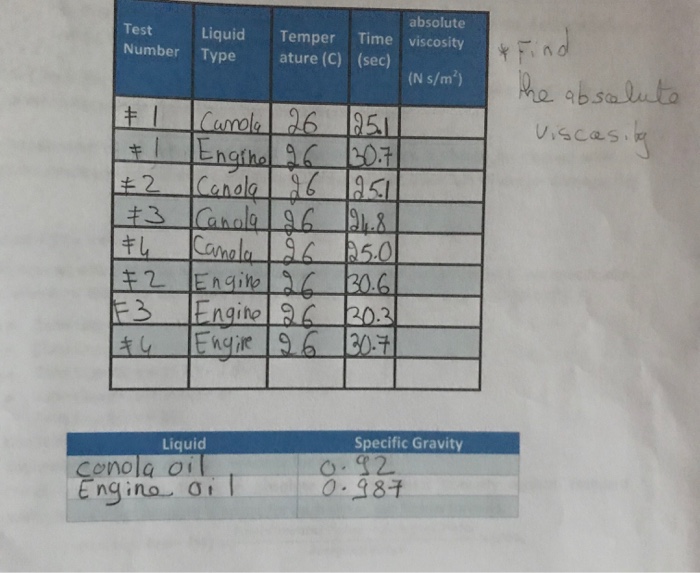 Test Number | Liquid Type | Temper ature (C) | Time (sec) | absolute viscosity (N s/m²)
# 1 | Canola | 26 | 25.1
# 1 | Engine | 26 | 30.7
# 2 | Canola | 26 | 25.1
# 3 | Canola | 26 | 24.8
# 4 | Canola | 26 | 25.0
# 2 | Engine | 26 | 30.6
# 3 | Engine | 26 | 30.3
# 4 | Engine | 26 | 30.7
* Find
the absolute
viscosity
Liquid | Specific Gravity
conola oil | 0.92
Engine oil | 0.987